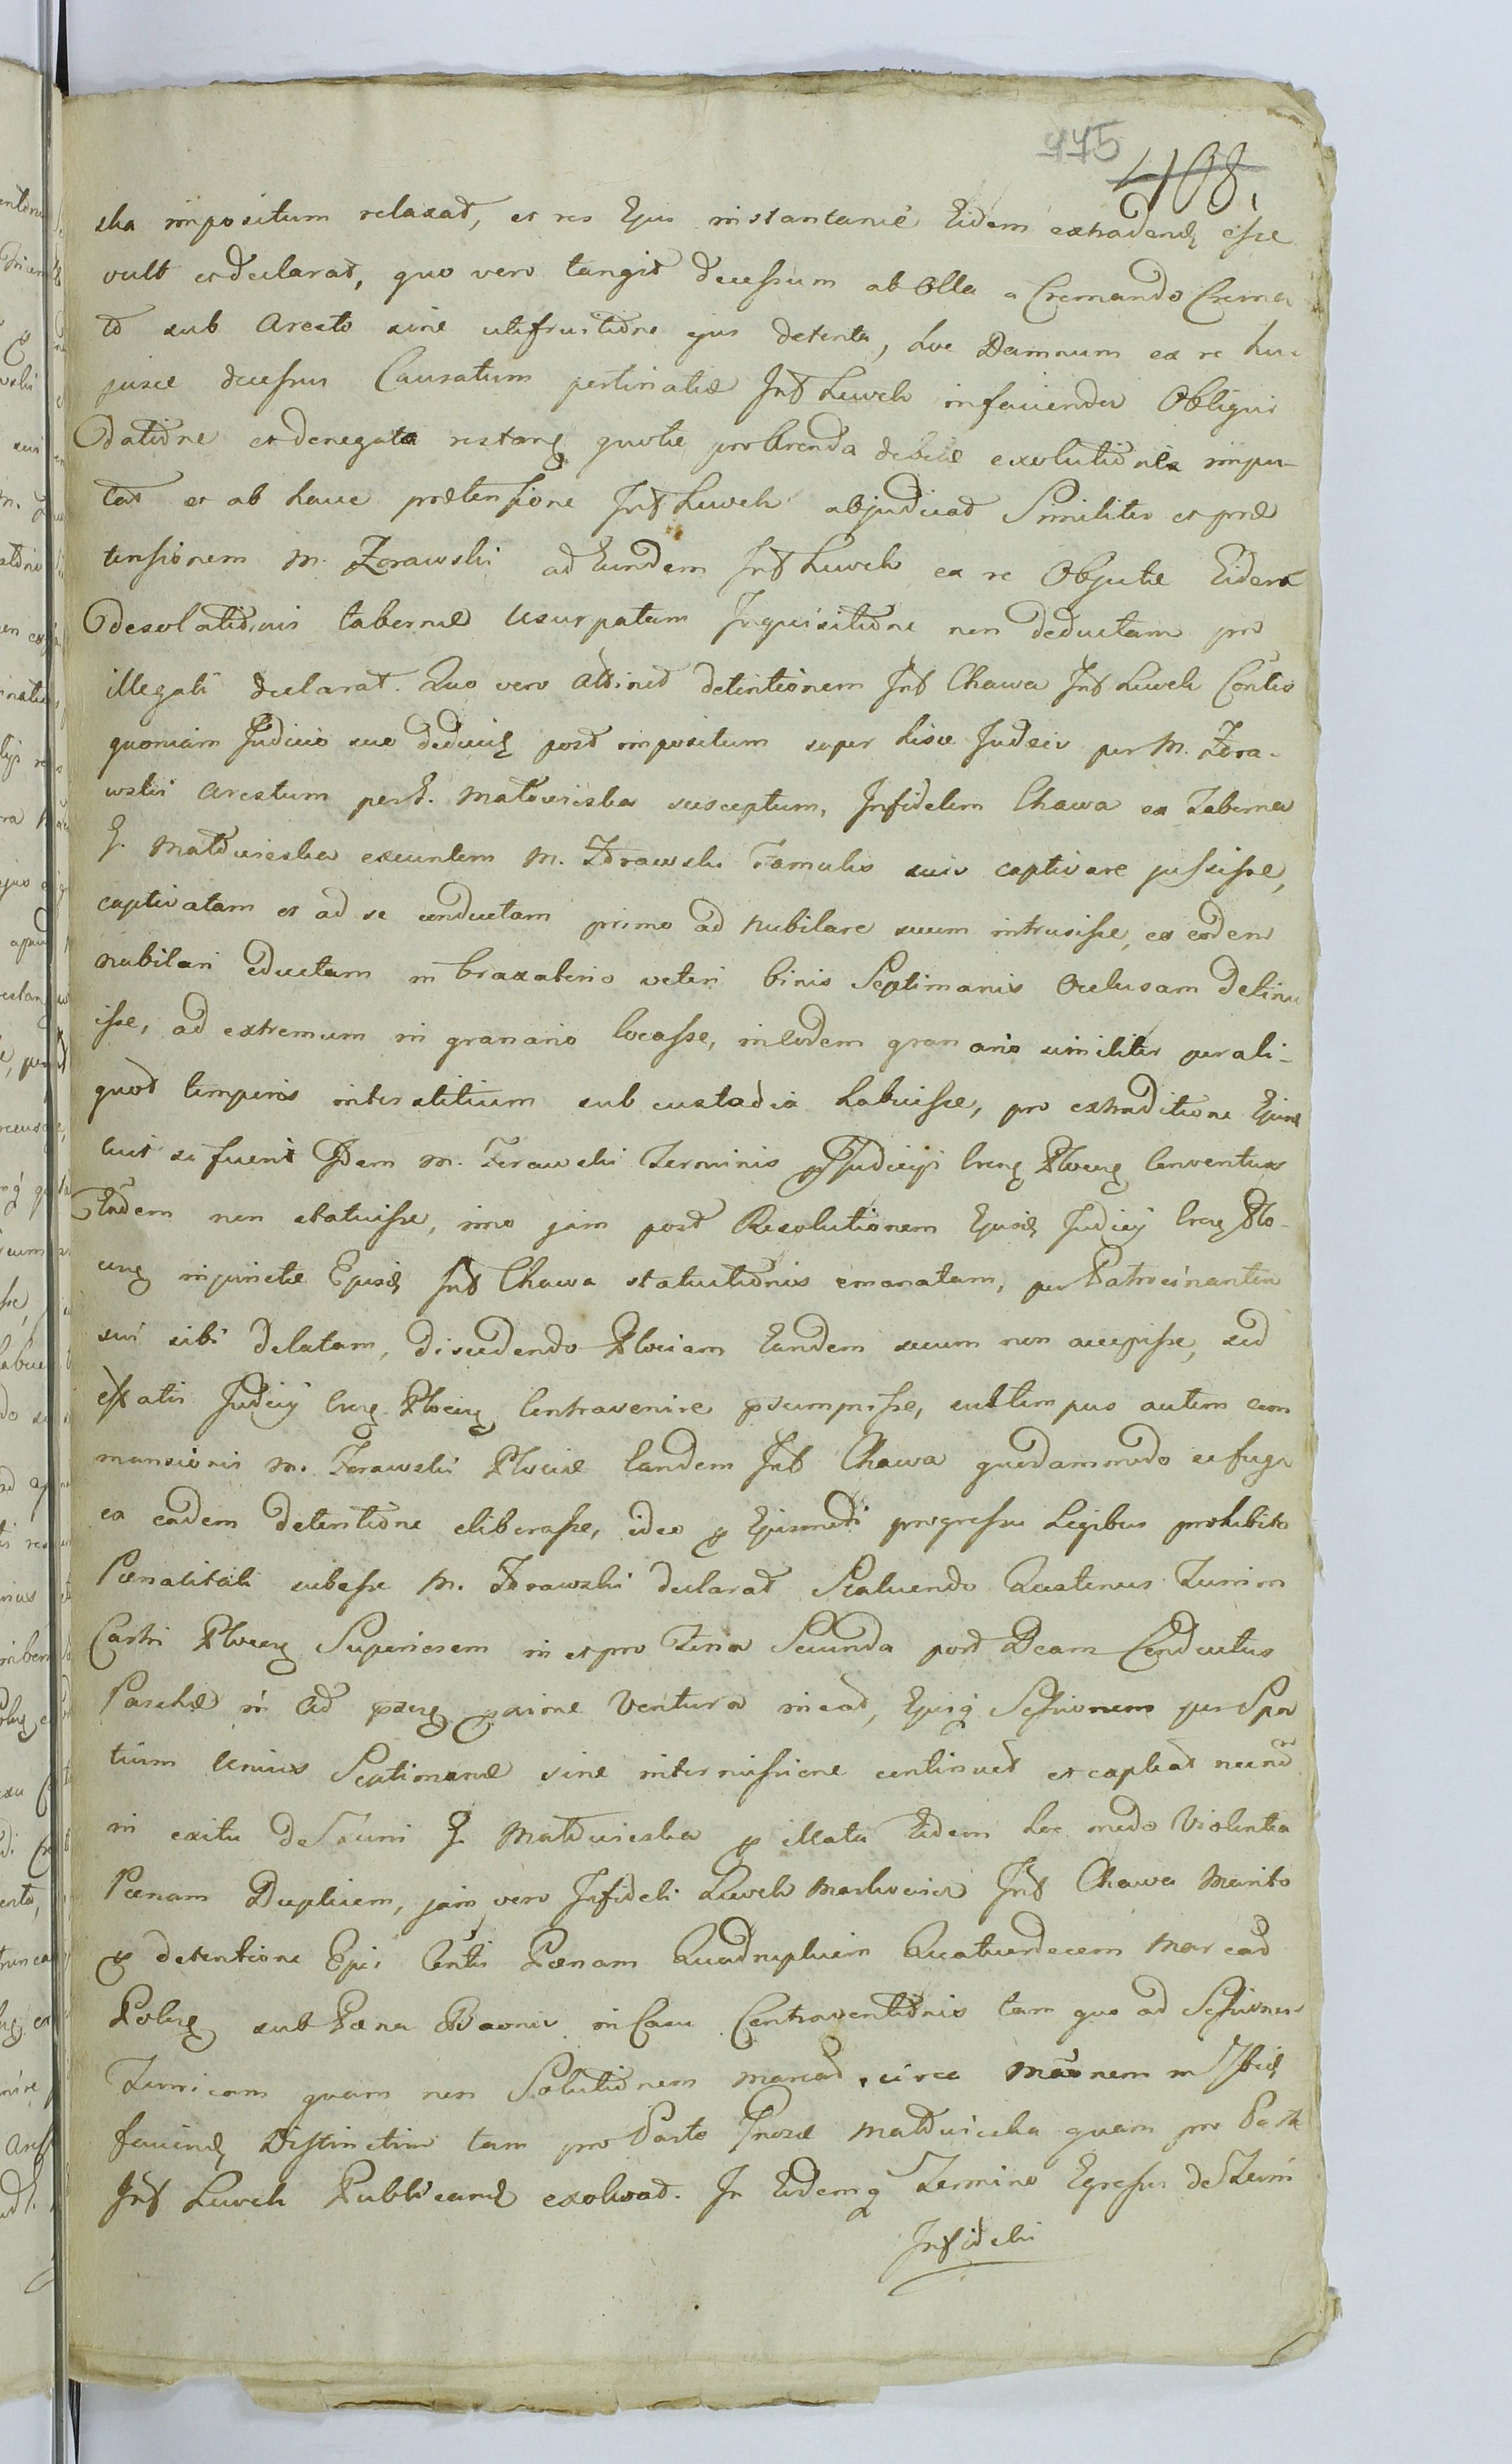 975
408.
ska impositum relaxat, et res Ejus instantanie Eidem extradend esse
vult et declarat, quo vero tangit decessum ab Olla a Cremando Crema
to sub Aresto sine utifruitione ejus detenta, hoc Damnum ex re hu
jusce decessus Causatum pertinatiæ Inf Lewek infaciendis Obligui
Datione et denegata restan quotæ pro Arenda debitæ exolutionis impu-
tat et ab hac prætensione Inf Lewek abjudicat Similiter et præ
tensionem M. Zorawski ad Eundem Inf Lewek ex re Objectæ Eidem
desolationis tabernæ Usurpatam Inquisitione non deductam pro
illegali declarat. Quo vero attinet detentionem Inf Chawa Inf Lewek Contis
quoniam Judicio suo deducit post impositum super hisce Judæis per M. Zora-
wski Arestum per G. Matowieska susceptum, Infidelem Chawa ex Taberna
G. Matowieska exeuntem M. Zorawski Famulis suis captivare jussisse,
captivatam et ad se conductam primo ad nubilare suum intrusisse, ex eodem
nubilari eductam in braxatorio veteri binis Septimanis Oclusam detinu
isse, ad extremum in granario locasse, in eodem granario similiter per ali-
quod temporis interstitium sub custodia habuisse, pro extraditione Ejusd
licet si fuerit Idem M. Zorawski Terminis Judicij Cren Plocen Conventus
Eadem non statuisse, imo jam post Resolutionem Ejusd Judicij Cren Plo-
cen injunctæ Ejusd Inf Chawa statuitionis emanatam, per Patrocinantem
sui sibi delatam, discedendo Plociam Eandem secum non accepisse, sed
effatis Judicij Cren Plocen Contravenire præsumpsisse, sub tempus autem com
mansionis M. Zorawski Plociæ Eandem Inf Chawa quodammodo se fuga
ex eadem detentione eliberasse, ideo p Ejusmodi progressu Legibus prohibito
Pœnalitati subesse M. Zorawski declarat Statuendo Quatenus Turrim
Castri Plocen Superiorem in et pro Feria Secunda post Dcam Conductus
Paschæ in Ao præsen proxime Ventura ineat, Ejusq Sessionem per Spa
tium Unius Septimanæ sine intermissione continuet et expleat necno
in exitu de Turri G. Matowieska p illata Eidem hoc modo Violentia
Pœnam Duplicem, jam vero Infideli Lewek Markowicz Inf Chawa Marito
p detentione Ejus Contis Pœnam Quadruplicem Quatuordecem Marcar
Polon sub Pœna Bannis in Casu Contraventionis tam quo ad Sessionem
Turricam quam non Solutionem Marcar, circa manem in Judic
faciend Distinctim tam pro Parte Gnosæ Matowieska quam pro Parte
Inf Lewek Publicand exolvat. In Eodemq Termino Egressus de Turri
Infideli